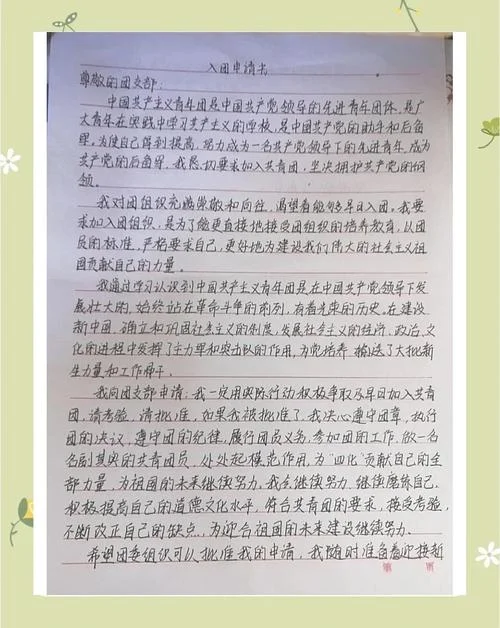 入团申请书
尊敬的团支部:
中国共产主义青年团是中国共产党领导的先进青年团体,是广
大青年在实践中学习共产主义的学校,是中国共产党的助手和后备
军。为使自己得到提高,努力成为一名共产党领导下的先进青年,成为
共产党的后备军,我恳切要求加入共青团,坚决拥护共产党的纲
领。
我对团组织充满崇敬和向往,渴望着能够早日入团。我要
求加入团组织,是为了能更直接地接受团组织的培养教育,以团
员的标准,严格要求自己,更好地为建设我们伟大的社会主义祖
国贡献自己的力量。
我通过学习认识到中国共产主义青年团是在中国共产党领导下发
展壮大的,始终站在革命斗争的前列,有着光荣的历史,在建设
新中国,确立和巩固社会主义的制度,发展社会主义的经济,政治,文
化的进程中发挥了主力军和突击队的作用,为党培养、输送了大批新
生力量和工作骨干。
我向团支部申请:我一定用实际行动积极争取及早日加入共青
团,请考验,请批准,如果我被批准了,我决心遵守团章,执行
团的决议,遵守团的纪律,履行团员义务,参加团的工作,做一名
名副其实的共青团员,处处起模范作用,为“四化”贡献自己的全
部力量,为祖国的未来继续努力。我会继续努力,继续磨练自己,
积极提高自己的道德文化水平,符合共青团的要求,接受考验,
不断改正自己的缺点,为迎合祖国的未来建设继续努力。
希望团委组织可以批准我的申请,我随时准备着迎接新
第 页